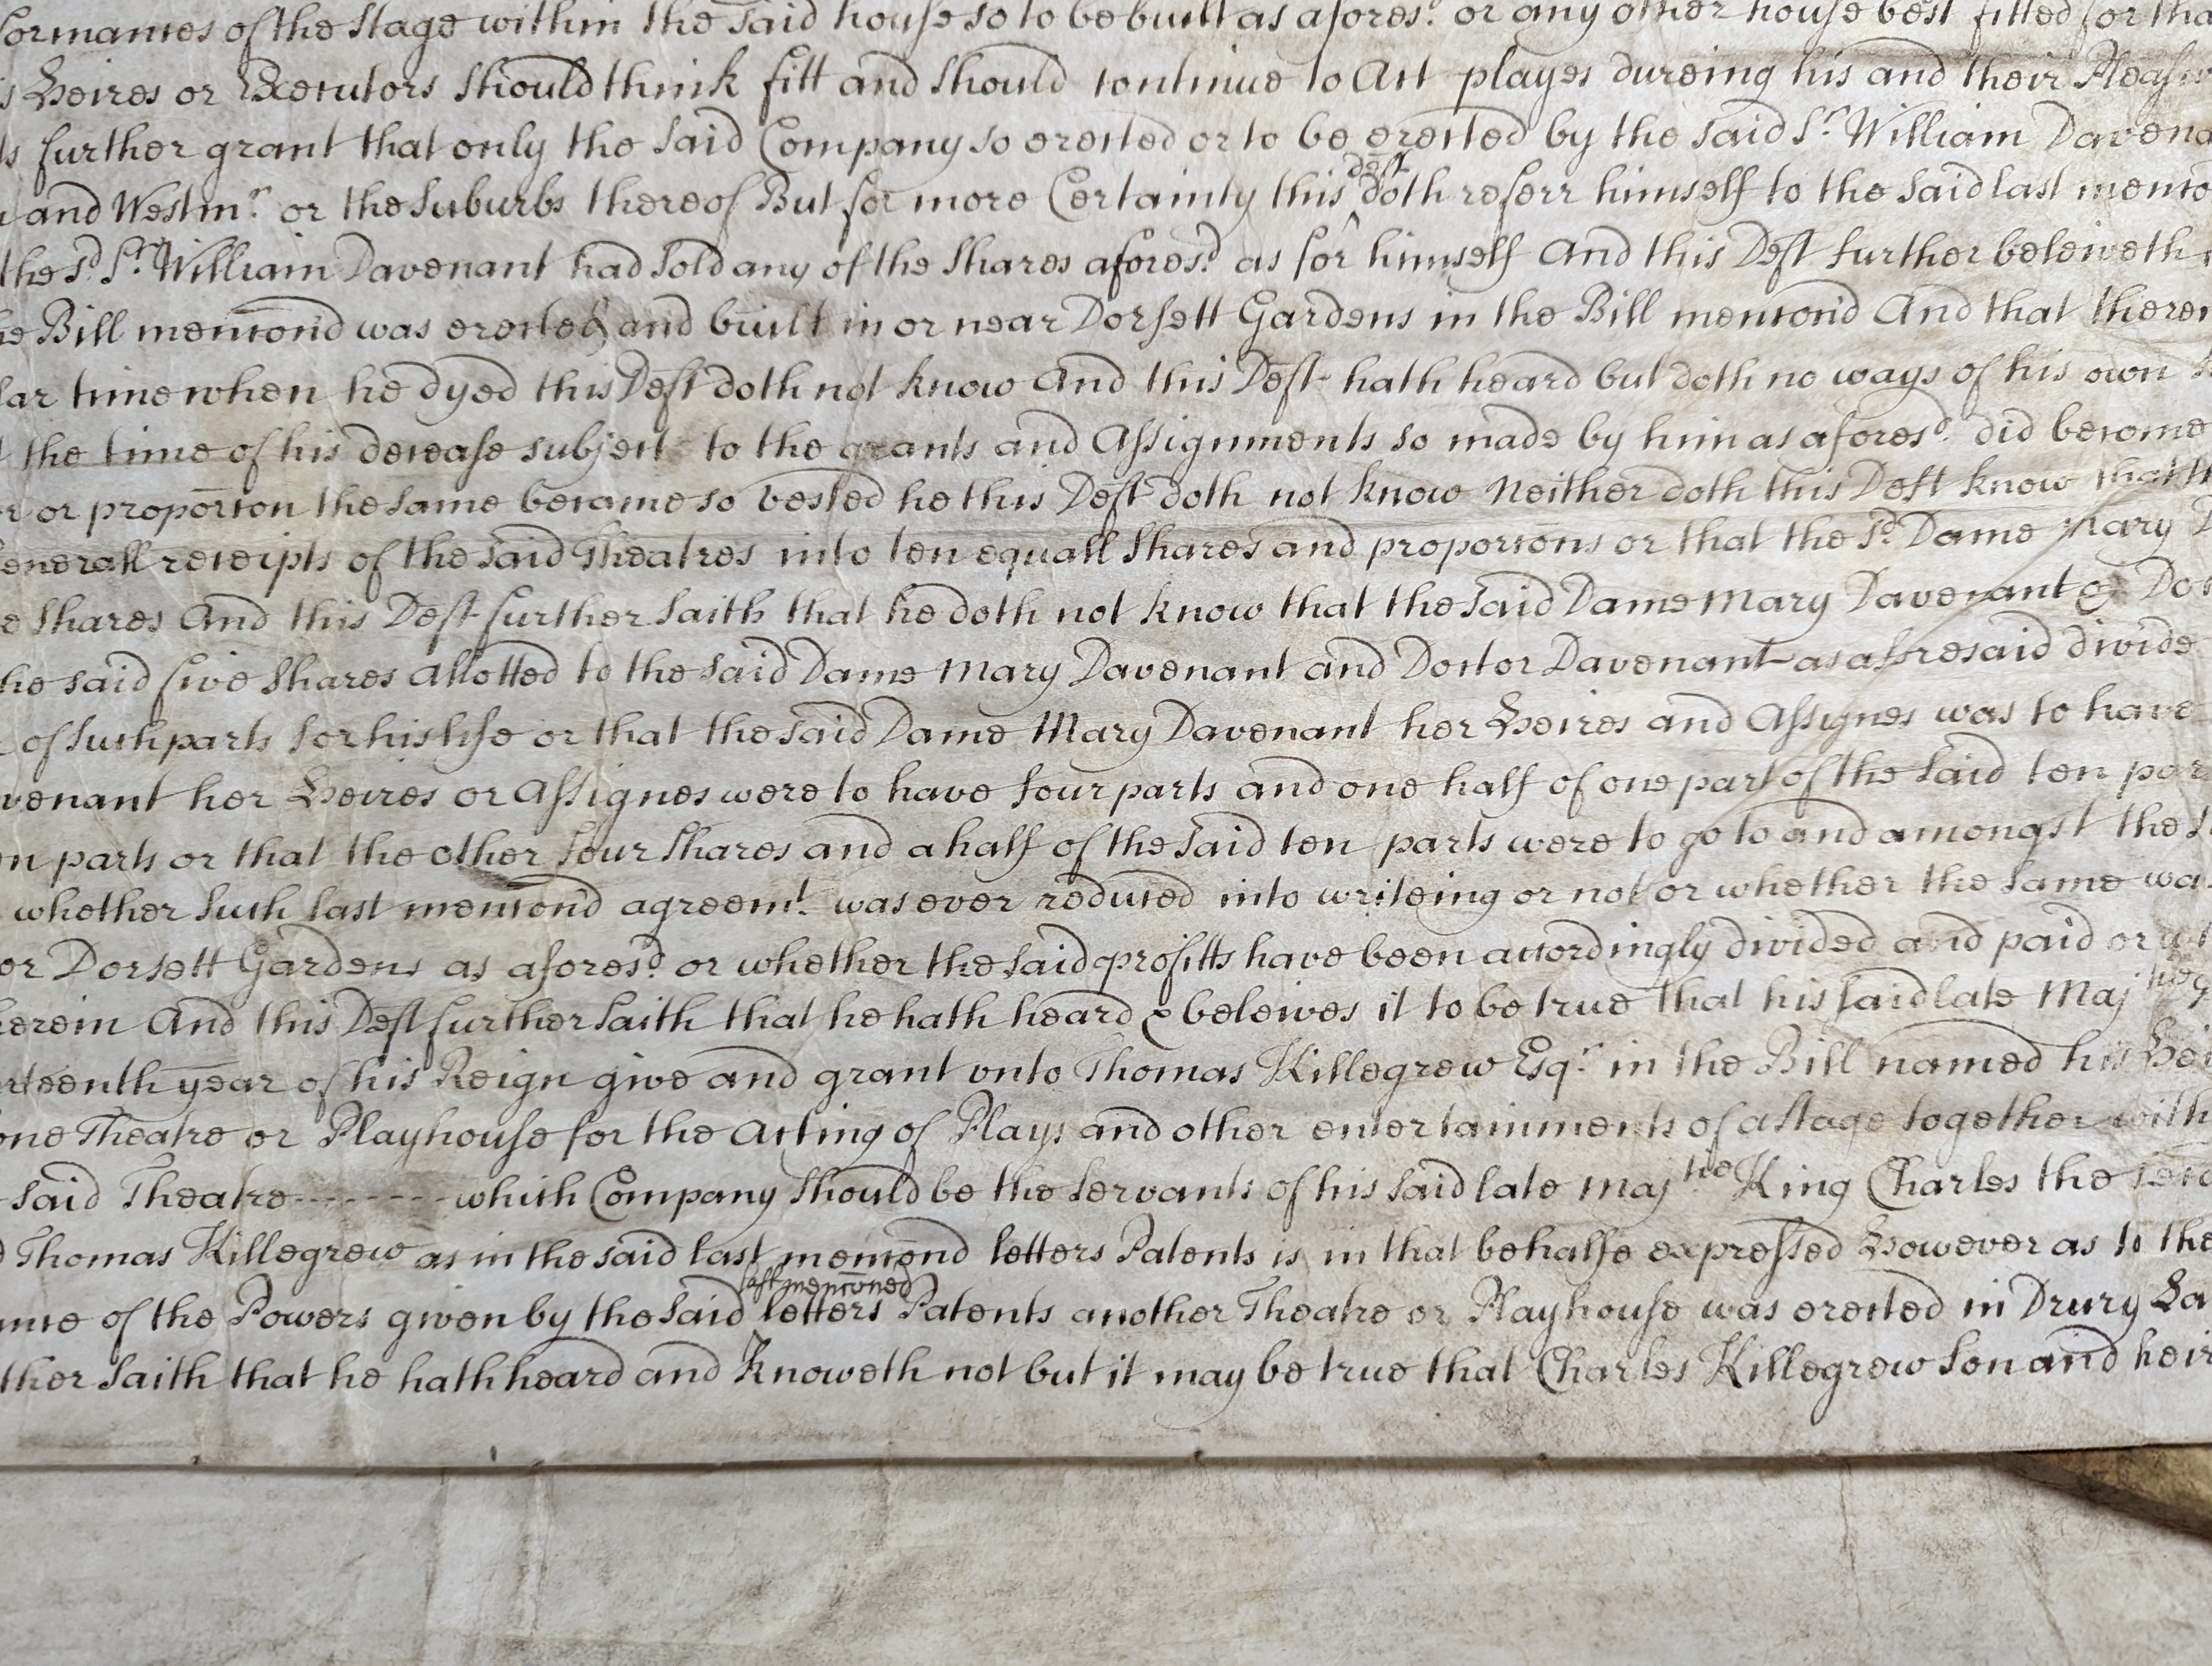 formances of the Stage within the said house so to be built as afores.d or any other house best fitted for tha
s Heires or Executors should think fitt and should continue to Act playes dureing his and their Pleasu
ts further grant that only the said Company so erected or to be erected by the said S.r William Davena
and Westm.r or the suburbs thereof But for more Certainty this deft doth referr himself to the said last menco
the s.d S.r William Davenant had sold any of the shares afores.d as for himself And this Deft further beleiveth
he Bill mencond was erected and built in or near Dorsett Gardens in the Bill mencond And that there
lar time when he dyed this Deft doth not know And this Deft hath heard but doth no ways of his own
t the time of his decease subject to the grants and Assignments so made by him as afores.d did become
r or proporcon the same became so vested he this Deft doth not know Neither doth this Deft know that th
enerall receipts of the said Theatres into ten equall shares and proporcons or that the s.d Dame Mary D
e shares And this Deft further saith that he doth not know that the said Dame Mary Davenant & Doc
he said five shares allotted to the said Dame Mary Davenant and Doctor Davenant as aforesaid divide
of such parts for his life or that the said Dame Mary Davenant her Heires and Assignes was to have
venant her Heires or Assignes were to have four parts and one half of one part of the said ten par
en parts or that the other four shares and a half of the said ten parts were to go to and amongst the s
whether such last mencond agreem.t was ever reduced into writeing or not or whether the same wa
or Dorsett Gardens as afores.d or whether the said profitts have been accordingly divided and paid or w
herein And this Deft further saith that he hath heard & beleives it to be true that his said late Maj.tie
rteenth year of his Reign give and grant unto Thomas Killegrew Esq.r in the Bill named his Hei
one Theatre or Playhouse for the Acting of Plays and other entertainments of a stage together with
said Theatre --------- which Company should be the servants of his said late Maj.tie King Charles the seco
d Thomas Killegrew as in the said last mencond letters Patents is in that behalfe expressed However as to the
ance of the Powers given by the said last mencioned letters Patents another Theatre or Playhouse was erected in Drury La
ther saith that he hath heard and Knoweth not but it may be true that Charles Killegrew son and heir